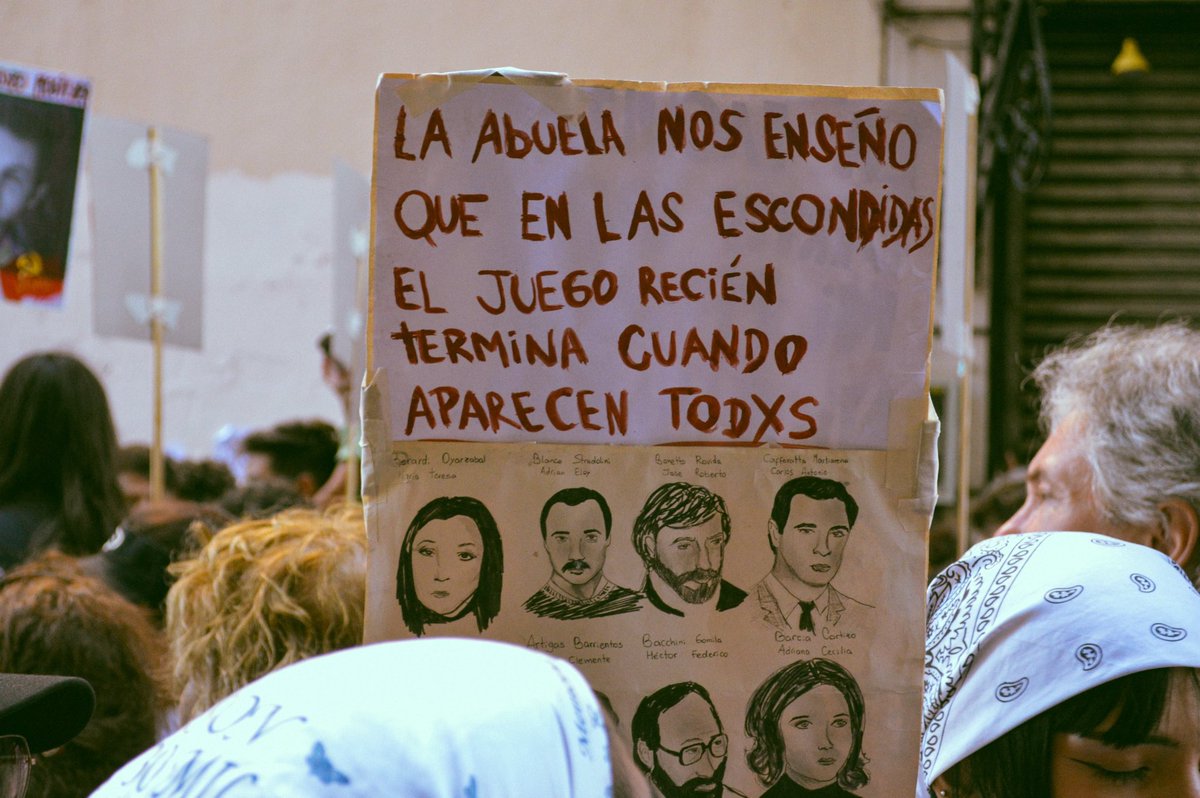 LA ABUELA NOS ENSEÑO
QUE EN LAS ESCONDIDAS
EL JUEGO RECIÉN
TERMINA CUANDO
APARECEN TODXS
Oyarzabal
Teresa
Blanco Stradolini
Adrian Eloy
Baretto Ravida
Jose Roberto
Carlos Antonio
Artigas Barrientos
Clemente
Bacchini Gomila
Héctor Federico
Barcia Cortizo
Adriana Cecilia